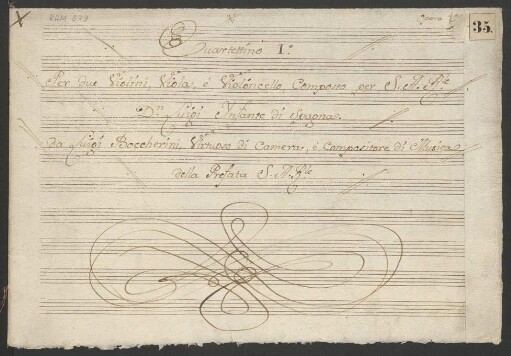 X
KHM 573
Opera
35.
Quartettino I.º
Per due Violini, Viola, é Violoncello, Composto per S. A. R.le
D.n Luigi Infante di Spagna.
Da Luigi Boccherini, Virtuoso di Camera, é Compositore di Musica
della Prefata S. A. R.le